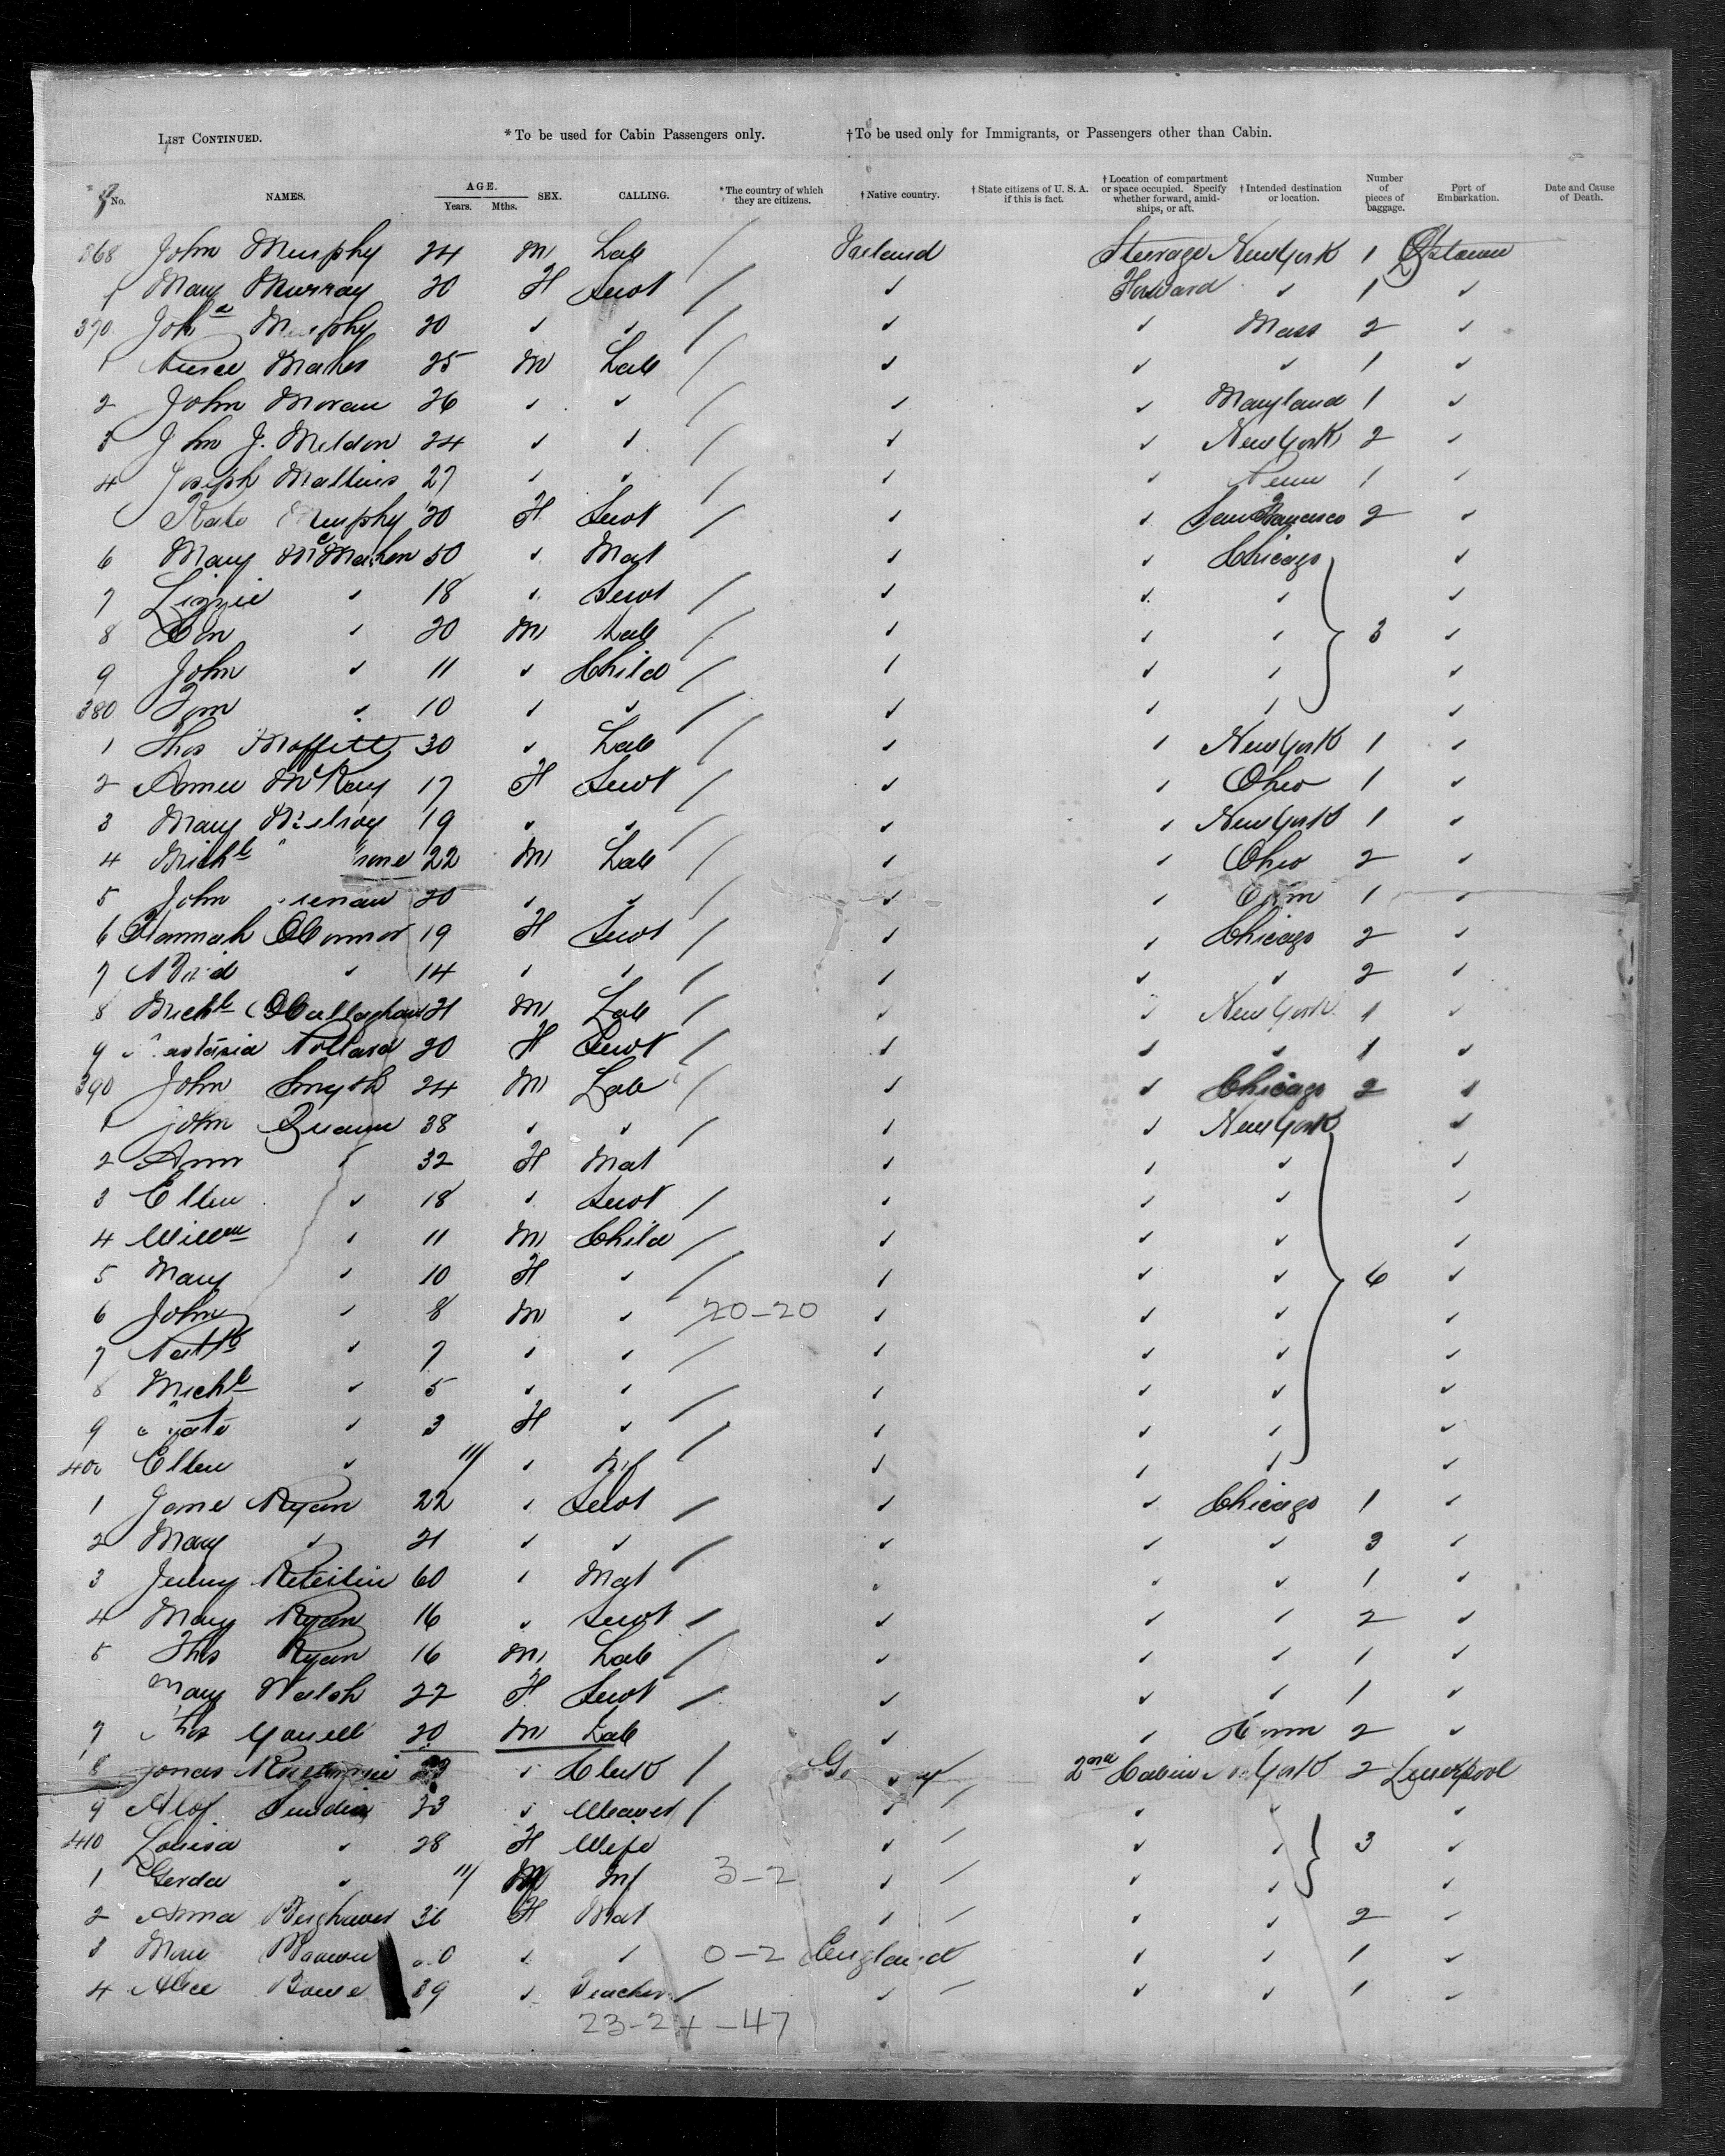 LIST CONTINUED. *To be used for Cabin Passengers only. †To be used only for Immigrants, or Passengers other than Cabin.
No. NAMES. AGE. Years. Mths. SEX. CALLING. *The country of which they are citizens. †Native country. †State citizens of U. S. A. if this is fact. †Location of compartment or space occupied. Specify whether forward, amidships, or aft. †Intended destination or location. Number of pieces of baggage. Port of Embarkation. Date and Cause of Death.
368 John Murphy 24 M Lab / Ireland Steerage New York 1 Qstown
Mary Murray 20 F Servt / ✓ Forward ✓ 1 ✓
370 Murphy 20 ✓ ✓ / ✓ ✓ Mass 2 ✓
1 Maher 25 M Lab / ✓ ✓ ✓ 1 ✓
2 John Moran 26 ✓ ✓ / ✓ ✓ Maryland 1 ✓
3 John J. Meldon 24 ✓ ✓ / ✓ ✓ New York 2 ✓
4 Joseph 27 ✓ ✓ / ✓ ✓ Penn 1 ✓
Kate Murphy 20 F Servt / ✓ ✓ San Francisco 2 ✓
6 Mary McMahon 50 ✓ Mat ✓ ✓ Chicago ✓
7 Lizzie ✓ 18 ✓ Servt / ✓ ✓ ✓ ✓
8 Con ✓ 20 M Lab / ✓ ✓ ✓ 3 ✓
9 John ✓ 11 ✓ Child / ✓ ✓ ✓ ✓
380 Tom ✓ 10 ✓ ✓ / ✓ ✓ ✓ ✓
1 Thos Moffitt 30 ✓ Lab / ✓ ✓ New York 1 ✓
2 Annie McKay 17 F Servt / ✓ ✓ Ohio 1 ✓
3 Mary McElroy 19 ✓ ✓ / ✓ ✓ New York 1 ✓
4 Michl 22 M Lab / ✓ ✓ Ohio 2 ✓
5 John 20 ✓ ✓ / ✓ ✓ 1 ✓
6 Hannah OConnor 19 F Servt / ✓ ✓ Chicago 2 ✓
7 ✓ 14 ✓ ✓ / ✓ ✓ ✓ 2 ✓
8 Michl OCallaghan 21 M Lab / ✓ ✓ New York 1 ✓
9 Pollard 20 F Servt / ✓ ✓ ✓ 1 ✓
390 John Smyth 24 M Lab / ✓ ✓ Chicago 2 ✓
1 John Quann 38 ✓ ✓ / ✓ ✓ New York ✓
2 Ann ✓ 32 F Mat ✓ ✓ ✓ ✓
3 Ellen ✓ 18 ✓ Servt / ✓ ✓ ✓ ✓
4 Willm ✓ 11 M Child / ✓ ✓ ✓ ✓
5 Mary ✓ 10 F ✓ / ✓ ✓ ✓ 6 ✓
6 John ✓ 8 M ✓ / 20-20 ✓ ✓ ✓ ✓
7 Patk ✓ 7 ✓ ✓ / ✓ ✓ ✓ ✓
8 Michl ✓ 5 ✓ ✓ / ✓ ✓ ✓ ✓
9 Kate ✓ 3 F ✓ / ✓ ✓ ✓ ✓
400 Ellen ✓ 11/ ✓ Inf ✓ ✓ ✓ ✓
1 Jane Ryan 22 ✓ Servt / ✓ ✓ Chicago 1 ✓
2 Mary ✓ 21 ✓ ✓ / ✓ ✓ ✓ 3 ✓
3 60 ✓ Mat ✓ ✓ ✓ 1 ✓
4 Mary Ryan 16 ✓ Servt / ✓ ✓ ✓ 2 ✓
5 Thos Ryan 16 M Lab / ✓ ✓ ✓ 1 ✓
Mary Walsh 22 F Servt / ✓ ✓ ✓ 1 ✓
7 20 M Lab ✓ ✓ 2 ✓
8 Jonas ✓ Clerk / 2nd Cabin N York 2 Liverpool
9 Alof 33 ✓ Weaver / ✓ ✓ ✓ ✓
410 Louisa ✓ 28 F Wife ✓ / ✓ ✓ 3 ✓
1 Gerda ✓ 11/ Inf 3-2 ✓ / ✓ ✓ ✓
2 Anna 36 F Mat ✓ / ✓ ✓ 2 ✓
3 ✓ ✓ 0-2 England ✓ ✓ 1 ✓
4 Alice 39 ✓ Teacher / ✓ / ✓ ✓ 1 ✓
23-24-47